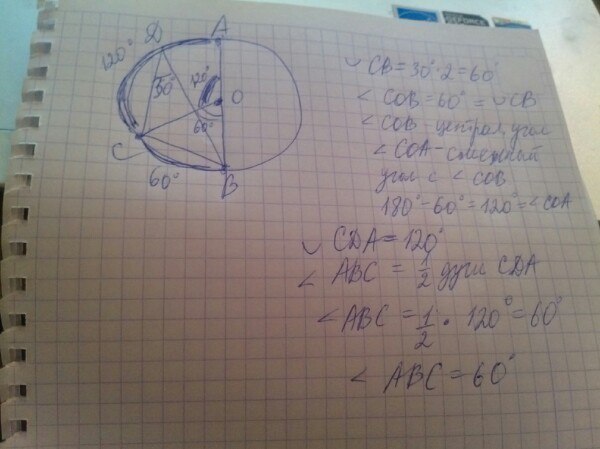 GEFORCE
D
A
120°
30°
120°
O
60°
C
60°
B
◡ CB = 30°·2 = 60°
∠ COB = 60° = ◡ CB
∠ COB - централ. угол
∠ COA - смежный
угол с ∠ COB
180° - 60° = 120° = ∠ COA
◡ CDA = 120°
∠ ABC = 1/2 дуги CDA
∠ ABC = 1/2 · 120° = 60°
∠ ABC = 60°